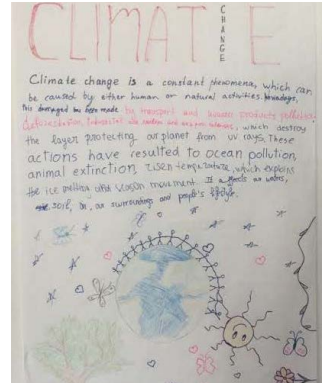 CLIMATE
CHANGE
Climate change is a constant phenomena, which can
be caused by either human or natural activities. Nowadays,
this damaged has been made by transport and human products pollution,
deforestation, industrial and, which destroy
the layer protecting our planet from uv rays. These
actions have resulted to ocean pollution,
animal extinction, risen temperature, which explains
the ice melting and season movement. It affects as waters,
soil, in, as surroundings and people's lifestyle.